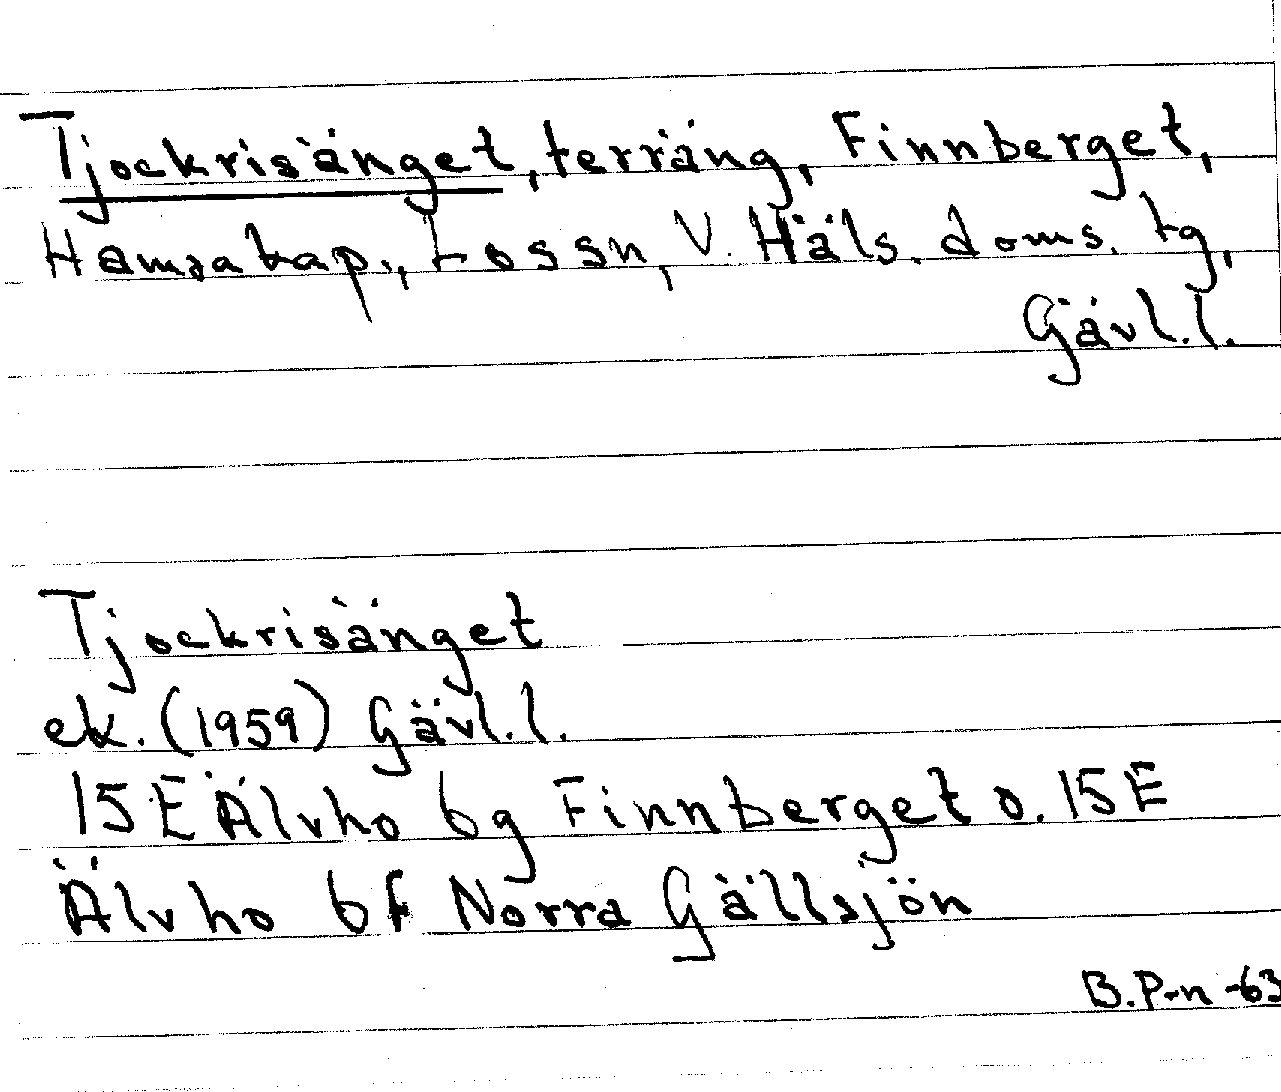 Tjockrisänget, terräng, Finnberget,
Hamrakap., Lossn, V. Häls. doms. tg,
Gävl.l.
Tjockrisänget
ek. (1959) Gävl.l.
15E Älvho 6g Finnberget o. 15E
Älvho 6f Norra Gällsjön
B.P-n -63